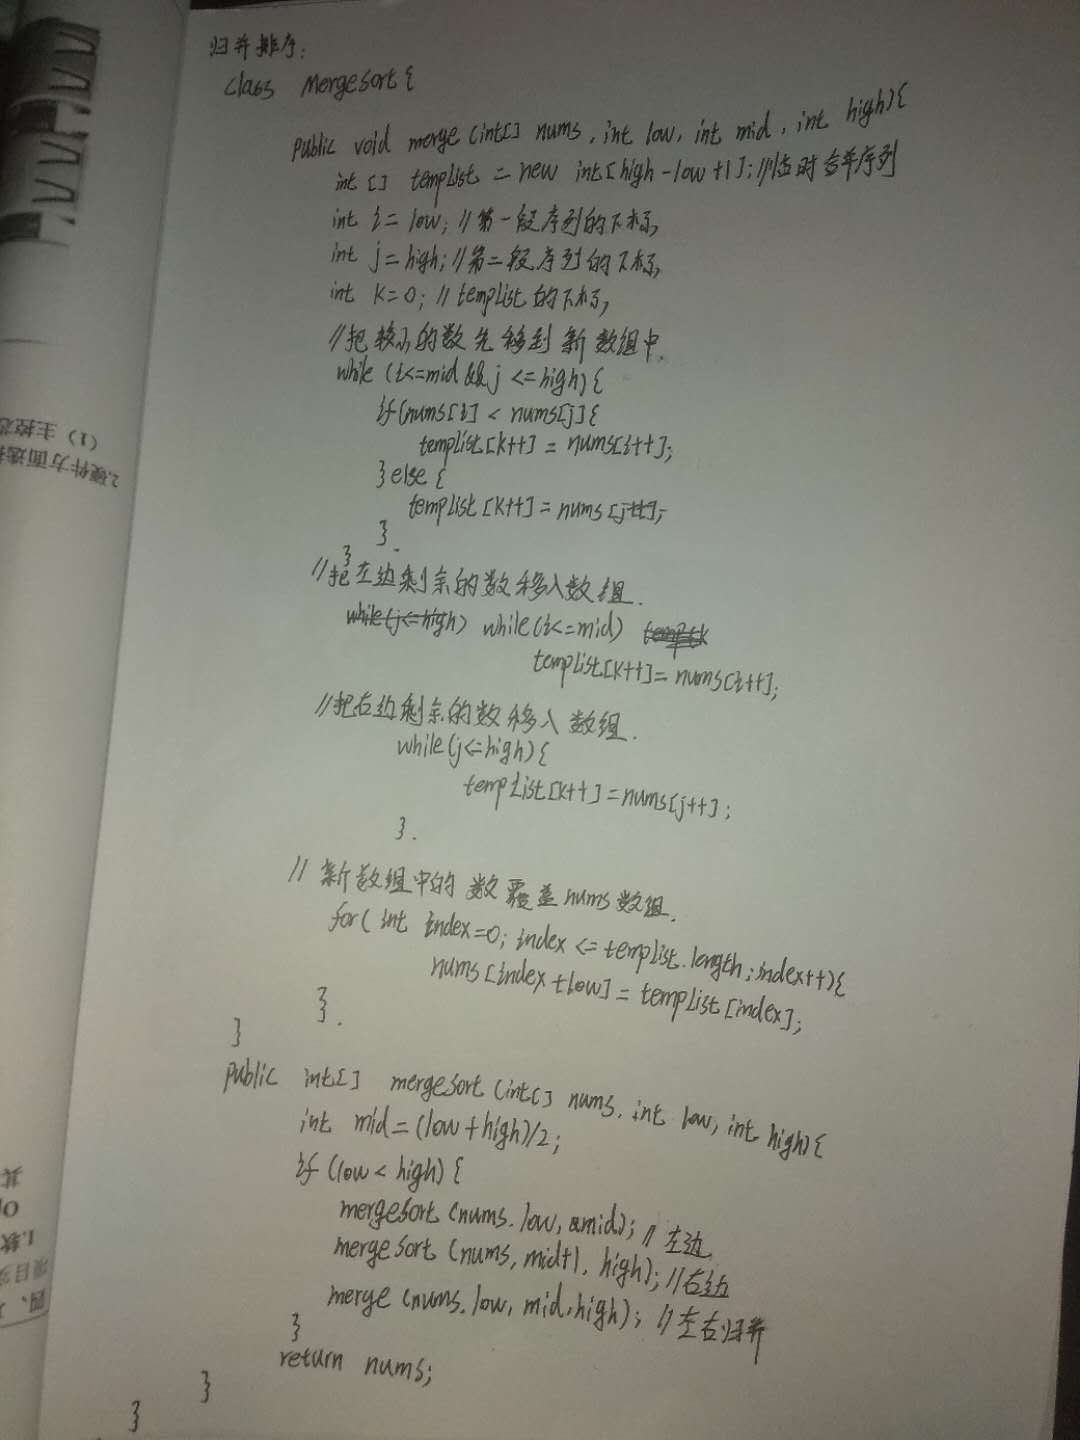 归并排序:
class Mergesort {
public void merge (int[] nums, int low, int mid, int high){
int [] templist = new int[high-low+1]; //临时合并序列
int i = low; //第一段序列的下标,
int j = high; //第二段序列的下标,
int k=0; // templist 的下标,
//把较小的数先移到新数组中.
while (i<=mid && j <=high){
if(nums[i] < nums[j]{
templist[k++] = nums[i++];
} else {
templist [k++] = nums [j++];
}.
}
//把左边剩余的数移入数组.
while(j<=high) while(i<=mid)
templist[k++] = nums[i++];
//把右边剩余的数移入数组.
while(j<=high){
templist[k++] = nums[j++];
}.
// 新数组中的数覆盖nums数组.
for( int index=0; index <= templist.length; index++){
nums [index+low] = templist [index];
}.
}
public int[] mergesort (int[] nums, int low, int high){
int mid = (low + high)/2;
if (low < high) {
mergesort (nums. low, mid); // 左边
mergesort (nums, mid+1, high); //右边
merge (nums. low, mid, high); //左右归并
}
return nums;
}
}
2.硬件方面选
(1) 主控
其
1.软
项目
四、